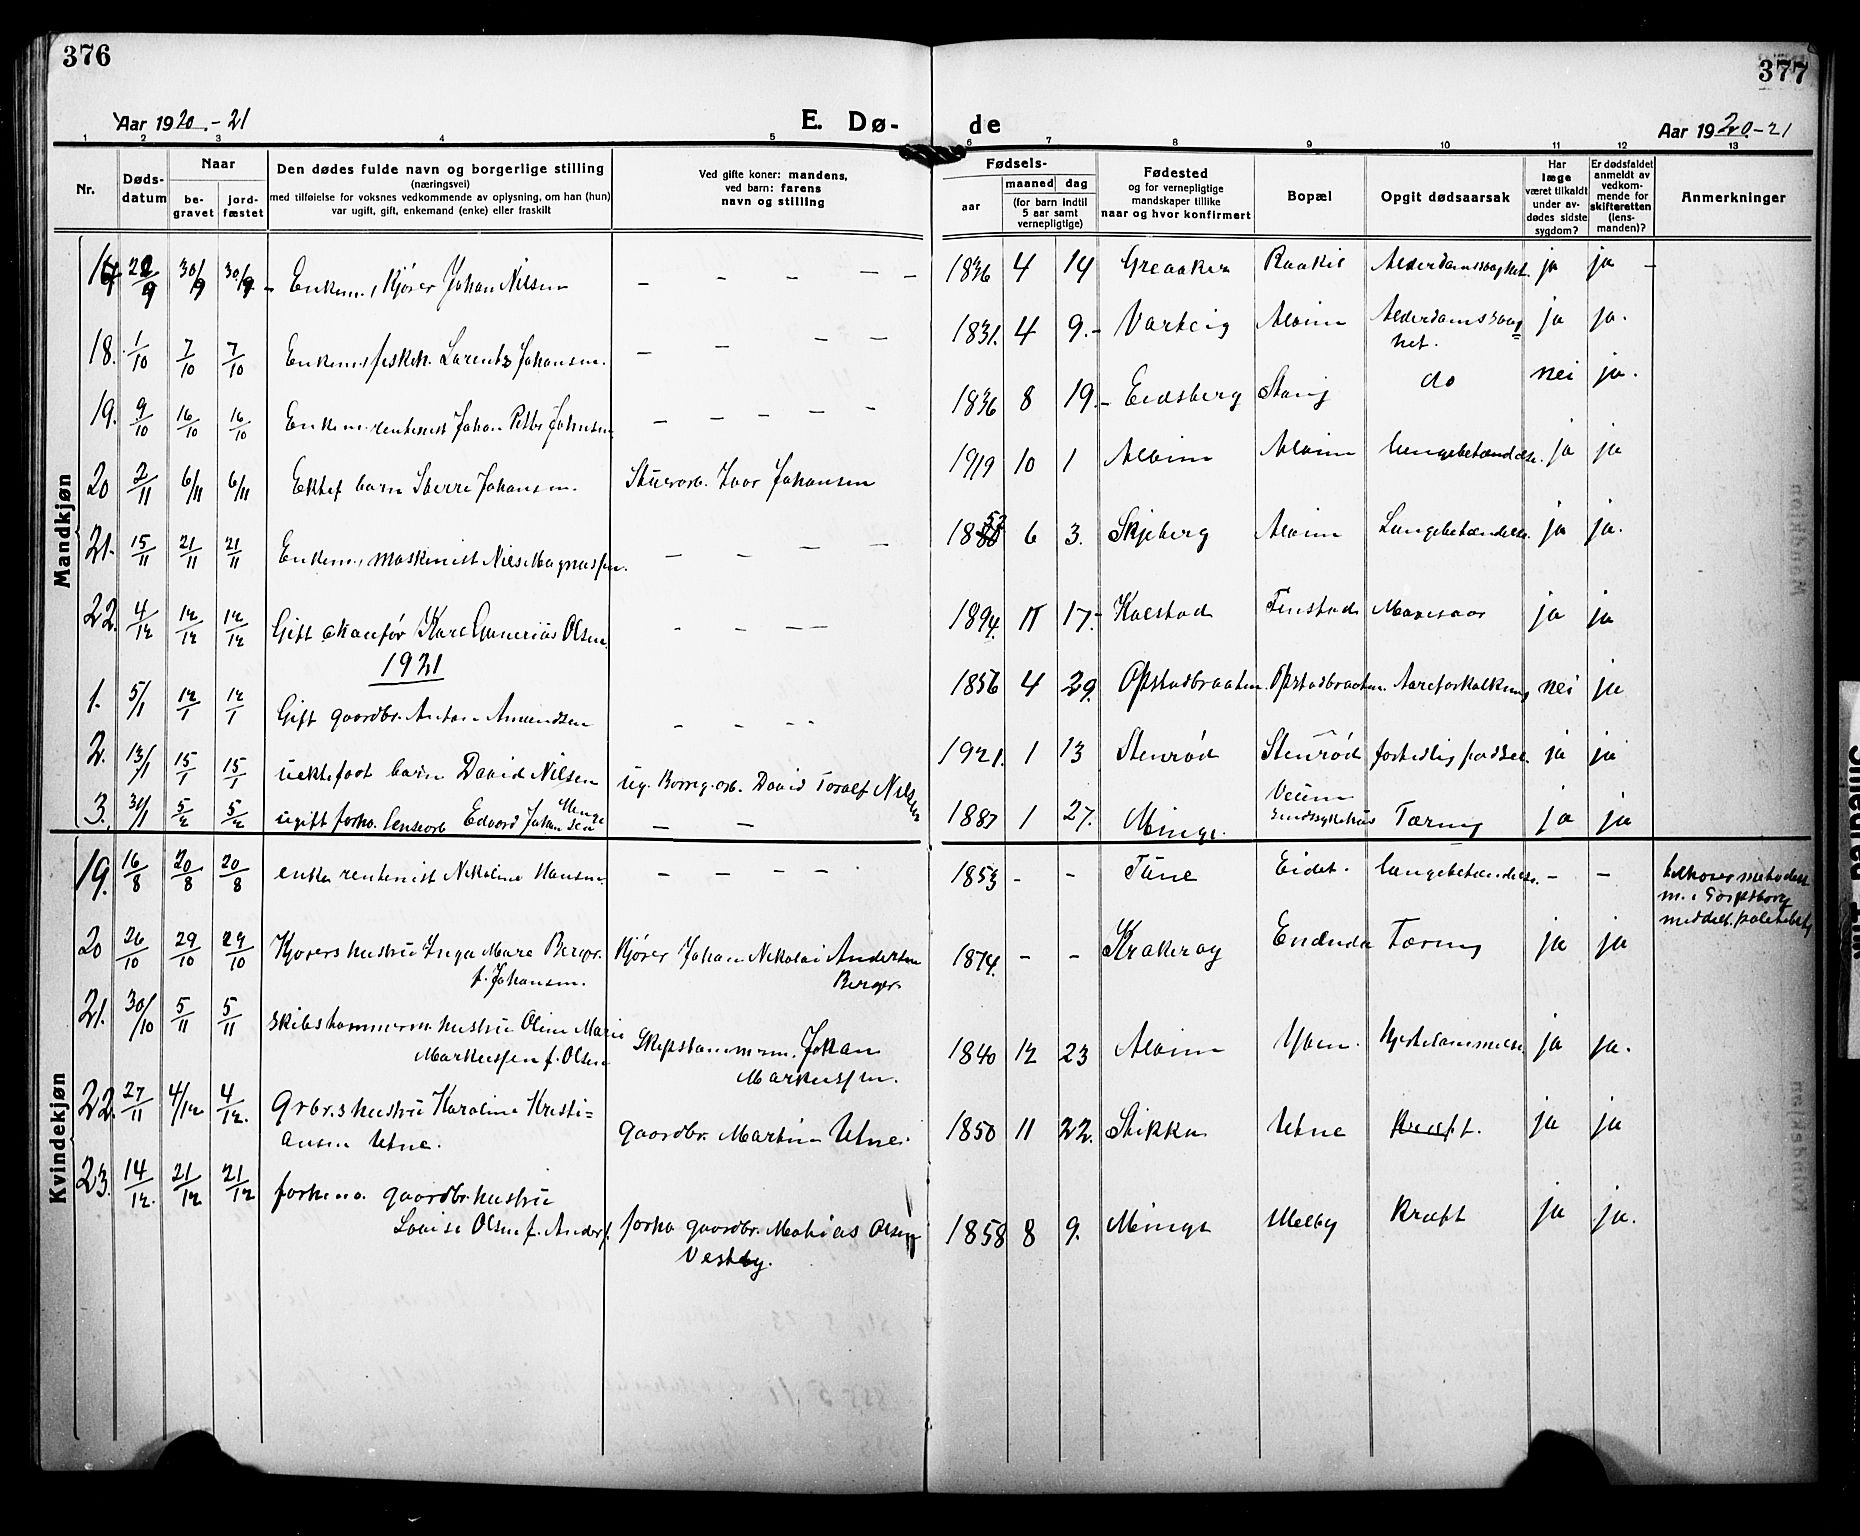 376
377
Aar 1920.-21
E. Dø-
de
Aar 1920-21
1 2 3 4 5 6 7 8 9 10 11 12 13
Nr.
Døds-
datum
Naar
be-
gravet
jord-
fæstet
Den dødes fulde navn og borgerlige stilling
(næringsvei)
med tilføielse for voksnes vedkommende av oplysning, om han (hun)
var ugift, gift, enkemand (enke) eller fraskilt
Ved gifte koner: mandens,
ved barn: farens
navn og stilling
Fødsels-
aar
maaned
dag
(for barn indtil
5 aar samt
vernepligtige)
Fødested
og for vernepligtige
mandskaper tillike
naar og hvor konfirmert
Bopæl
Opgit dødsaarsak
Har
læge
været tilkaldt
under av-
dødes sidste
sygdom?
Er dødsfaldet
anmeldt av
vedkom-
mende for
skifteretten
(lens-
manden)?
Anmerkninger
Mandkjøn
30/9 30/9 Enkem., Kjører Johan Nilsen – – – – 1836 4 14 Greaaker ja ja –
18. 1/10 7/10 7/10 Enkem., fisker. Larents Johansen. – – – – 1831. 4 9.- Varteig Alvim Alderdomssvag
het. ja ja.
19. 9/10 16/10 16/10 Enkem. rentenist Johan Petter Johnsen – – – – – 1836 8 19.- Eidsberg do nei ja.
20 2/11 6/11 6/11 Ektef barn Sverre Johansen. Johansen 1919 10 1 Alvim Alvim lungebetændelse. ja ja
21. 15/11 21/11 21/11 Enkem., maskinist Nils Magnussen. – – – – 1852 6 3. Skjeberg Alvim Lungebetændelse ja ja.
22. 4/12 12/12 12/12 Gift Olsen. – – – – 1894. 11 17.- Kolstad Tinstad Mavesaar ja ja
1921
1. 5/1 12/1 12/1 Gift gaardbr. Anton Amundsen – – – – 1856 4 29. Opstadbraaten Opstadbraaten Aareforkalkning nei ja
2. 13/1 15/1 15/1 uektefødt barn David Nilsen ug. David Toralf Nilsen 1921. 1 13 Stenrød Stenrød fortidlig fødsel. ja ja
3. 31/1 5/2 5/2 ugift forhv. Edvard Johansen
Minge – – 1887 1 27. Minge. Veum
Sindssykehus Tæring ja ja
Kvindekjøn
19. 16/8 20/8 20/8 enke rentenist Nikoline Hansen. – – – – 1853 – – Tune Eidet. lungebetændelse. – – tilhører metodist
m. i Sarpsborg
20 26/10 29/10 29/10 Kjørers hustru Inga Marie Berger.
f. Johansen. Kjører Johan Nikolai Andersen
Berger. 1874. – – Krakerøy Tæring ja ja
21. 30/10 5/11 5/11 skibstømmerm. hustru Oline Marie
Markussen f. Olsen Skipstømmerm. Johan
Markussen. 1840 12 23 Alvim Hjertelammelse ja ja.
22. 27/11 4/12 4/12. Grbr.s hustru Karoline Kristi=
ansen Utne. gaardbr. Martin Utne. 1850 11 22. Stikka Utne Kræft. ja ja
23. 14/12. 21/12 21/12 forhenv. gaardbr. hustru
Lovise Olsen f. Anders. forhv gaardbr. Mathias Olsen
Vestby. 1858 8 9. Minge Melby Kræft ja ja.